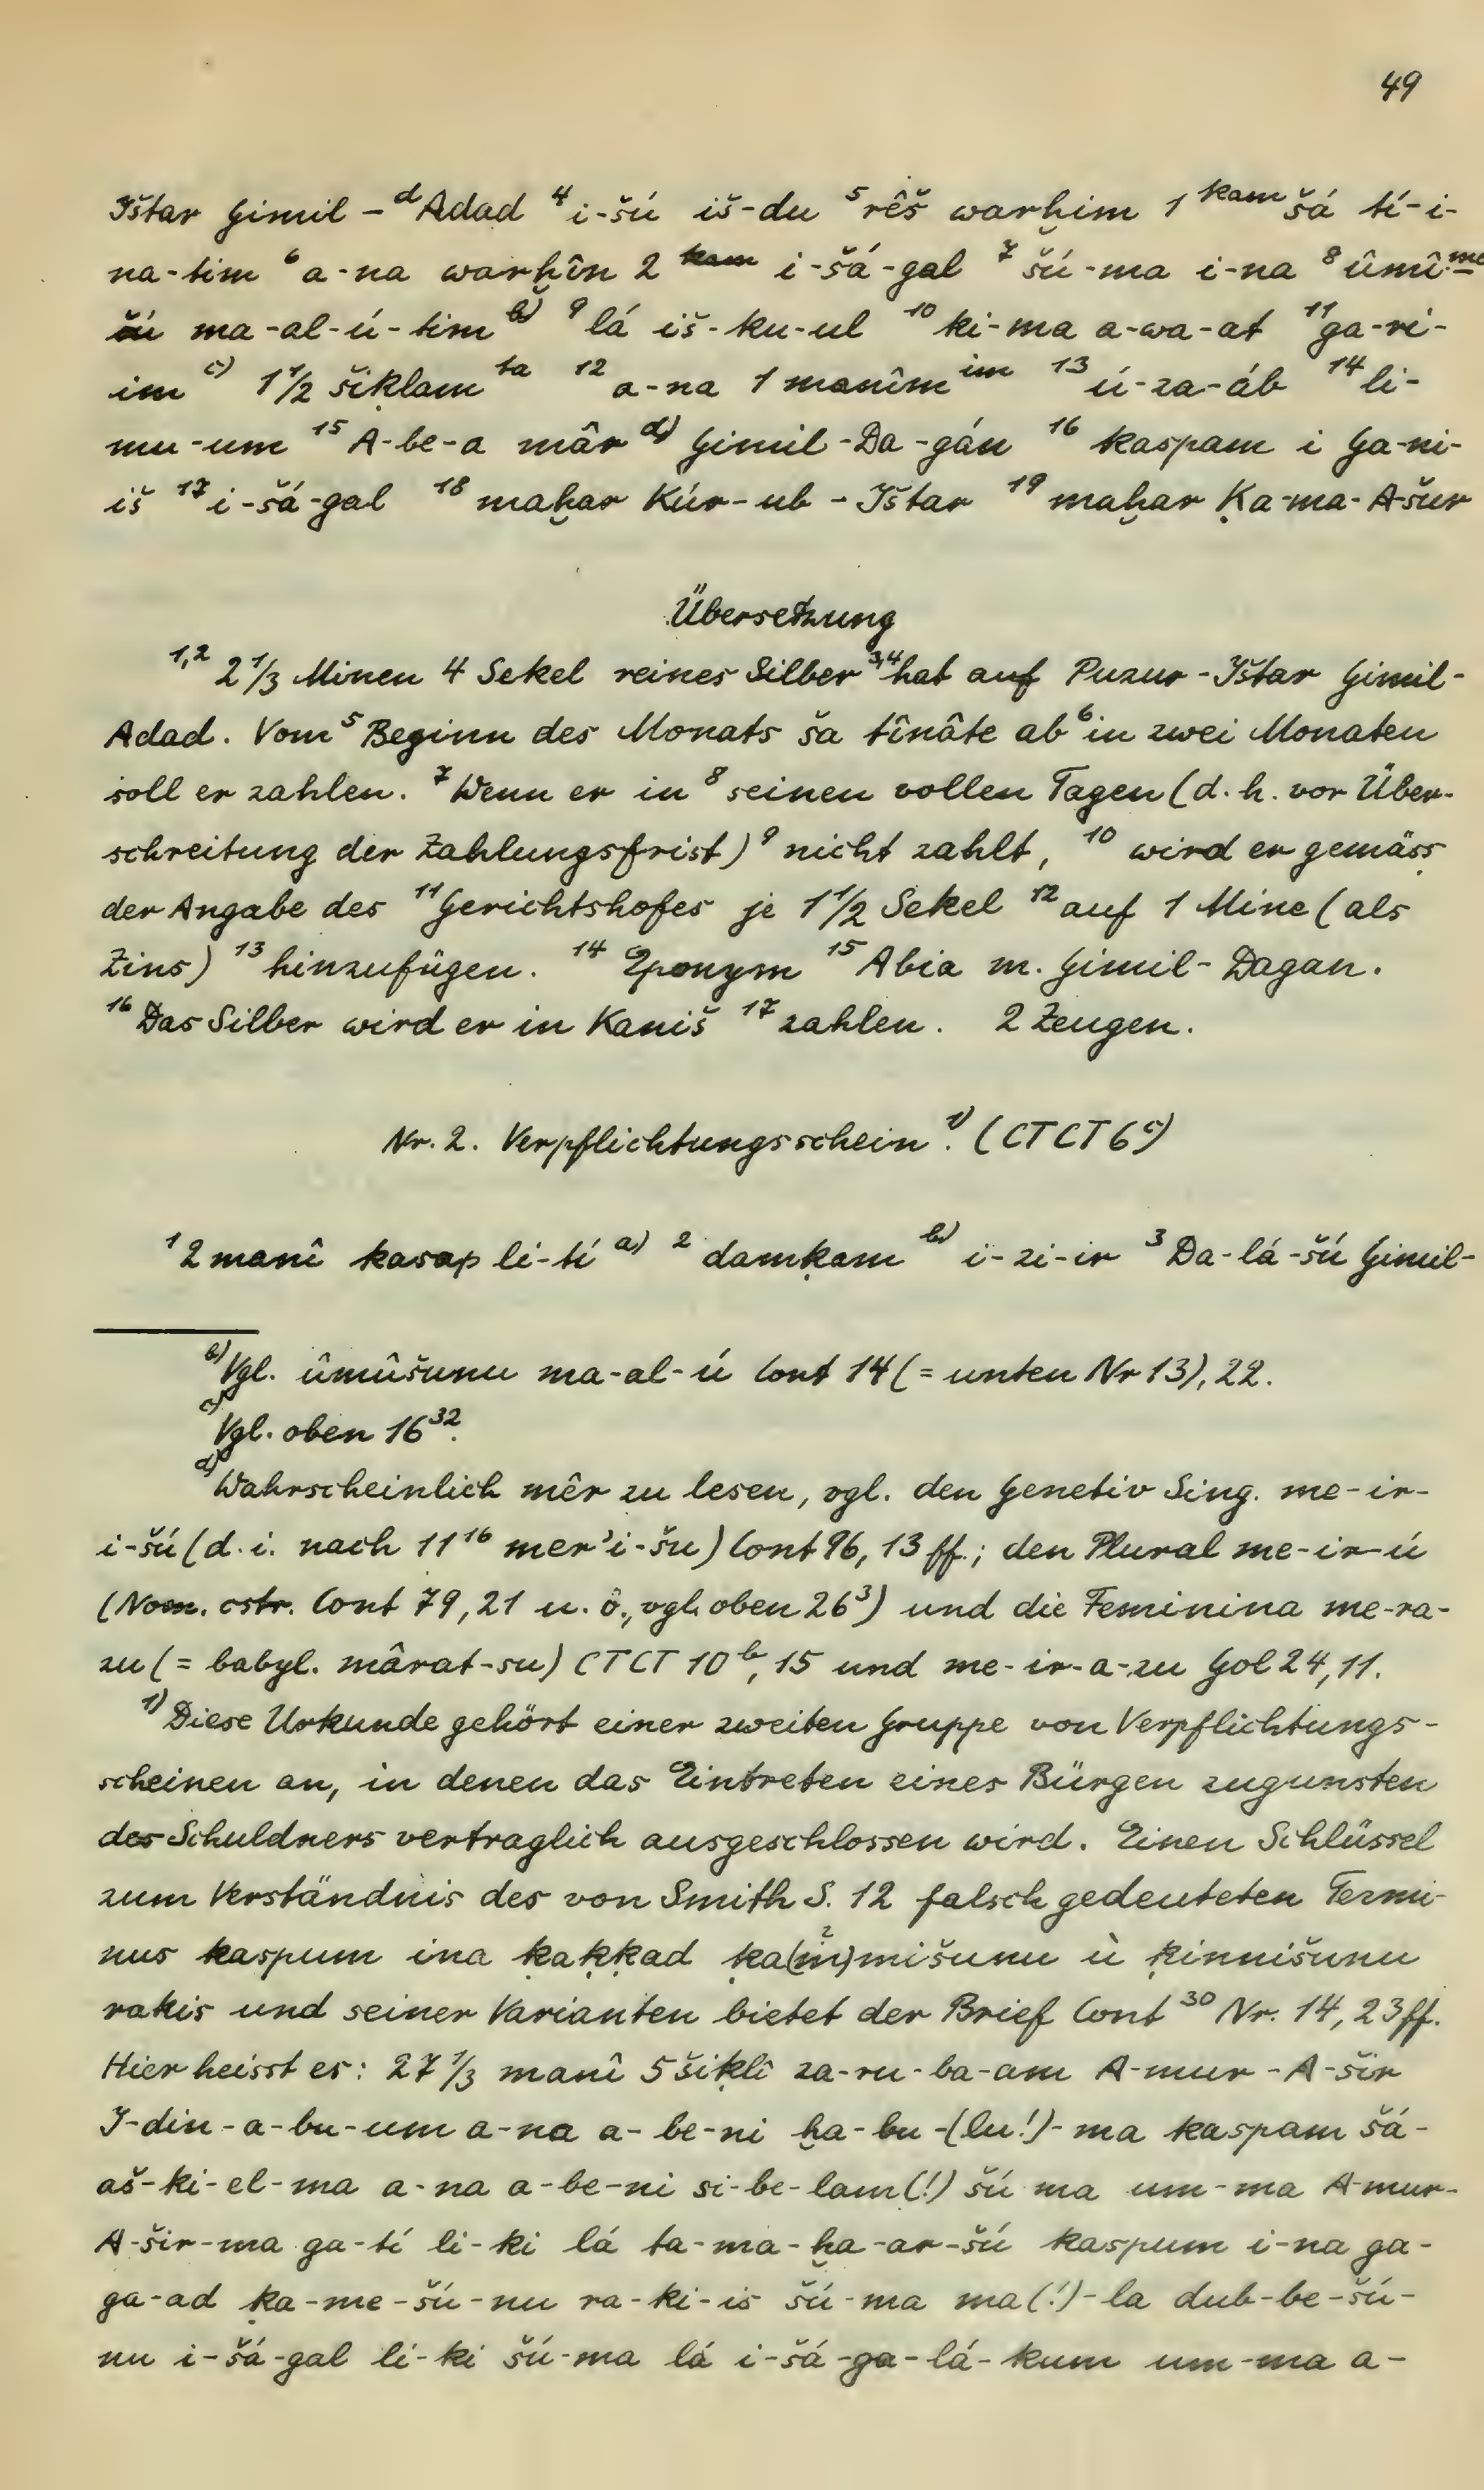 49
Ištar Gimil-ᵈAdad ⁴i-šú iš-du ⁵rêš warḫim 1 ᵏᵃᵐ šá tí-i-
na-tim ⁶a-na warḫîn 2 ᵏᵃᵐ i-šá-gal ⁷šú-ma i-na ⁸ûmî ᵐᵉ-
šú ma-al-ú-tim ᵇ⁾ ⁹lá iš-ku-ul ¹⁰ki-ma a-wa-at ¹¹ga-ri-
im ᶜ⁾ 1 1/2 šiḳlam ᵗᵃ ¹²a-na 1 manîm ⁱᵐ ¹³ú-za-áb ¹⁴li-
mu-um ¹⁵A-be-a mâr ᵈ⁾ Gimil-Da-gán ¹⁶kaspam i Ga-ni-
iš ¹⁷i-šá-gal ¹⁸maḫar Kúr-ub-Ištar ¹⁹maḫar Ḳa-ma-A-šur
Übersetzung
¹,² 2 1/3 Minen 4 Sekel reines Silber ³,⁴hat auf Puzur-Ištar Gimil-
Adad. Vom ⁵Beginn des Monats ša tînâte ab ⁶in zwei Monaten
soll er zahlen. ⁷Wenn er in ⁸seinen vollen Tagen (d.h. vor Über-
schreitung der Zahlungsfrist) ⁹nicht zahlt, ¹⁰wird er gemäss
der Angabe des ¹¹Gerichtshofes je 1 1/2 Sekel ¹²auf 1 Mine (als
Zins) ¹³hinzufügen. ¹⁴Eponym ¹⁵Abia m. Gimil-Dagan.
¹⁶Das Silber wird er in Kaniš ¹⁷zahlen. 2 Zeugen.
Nr. 2. Verpflichtungsschein ¹⁾. (CTCT 6ᶜ)
¹2 manî kasap li-tí ᵃ⁾ ²damḳam ᵇ⁾ i-zi-ir ³Da-lá-šú Gimil-
ᵇ⁾Vgl. ûmûšunu ma-al-ú Cont 14 (= unten Nr 13), 22.
ᶜ⁾Vgl. oben 16³².
ᵈ⁾Wahrscheinlich mêr zu lesen, vgl. den Genetiv Sing. me-ir-
i-šú (d.i. nach 11¹⁶ mer'i-šu) Cont 96, 13 ff.; den Plural me-ir-ú
(Nom. cstr. Cont 79, 21 u. ö., vgl. oben 26³) und die Feminina me-ra-
zu (= babyl. mârat-su) CTCT 10ᵇ, 15 und me-ir-a-zu Gol 24, 11.
¹⁾Diese Urkunde gehört einer zweiten Gruppe von Verpflichtungs-
scheinen an, in denen das Eintreten eines Bürgen zugunsten
des Schuldners vertraglich ausgeschlossen wird. Einen Schlüssel
zum Verständnis des von Smith S. 12 falsch gedeuteten Termi-
nus kaspum ina ḳaḳḳad ḳa(m²)mišunu ù ḳinnišunu
rakis und seiner Varianten bietet der Brief Cont ³⁰ Nr. 14, 23 ff.
Hier heisst es: 27 1/3 manî 5 šiḳlî za-ru-ba-am A-mur-A-šir
I-din-a-bu-um a-na a-be-ni ḫa-bu-(lu!)-ma kaspam šá-
aš-ki-el-ma a-na a-be-ni si-be-lam(!) šú ma um-ma A-mur-
A-šir-ma ga-tí li-ki lá ta-ma-ḫa-ar-šú kaspum i-na ga-
ga-ad ḳa-me-šú-nu ra-ki-is šú-ma ma(!)-la dub-be-šú-
nu i-šá-gal li-ki šú-ma lá i-šá-ga-lá-kum um-ma a-